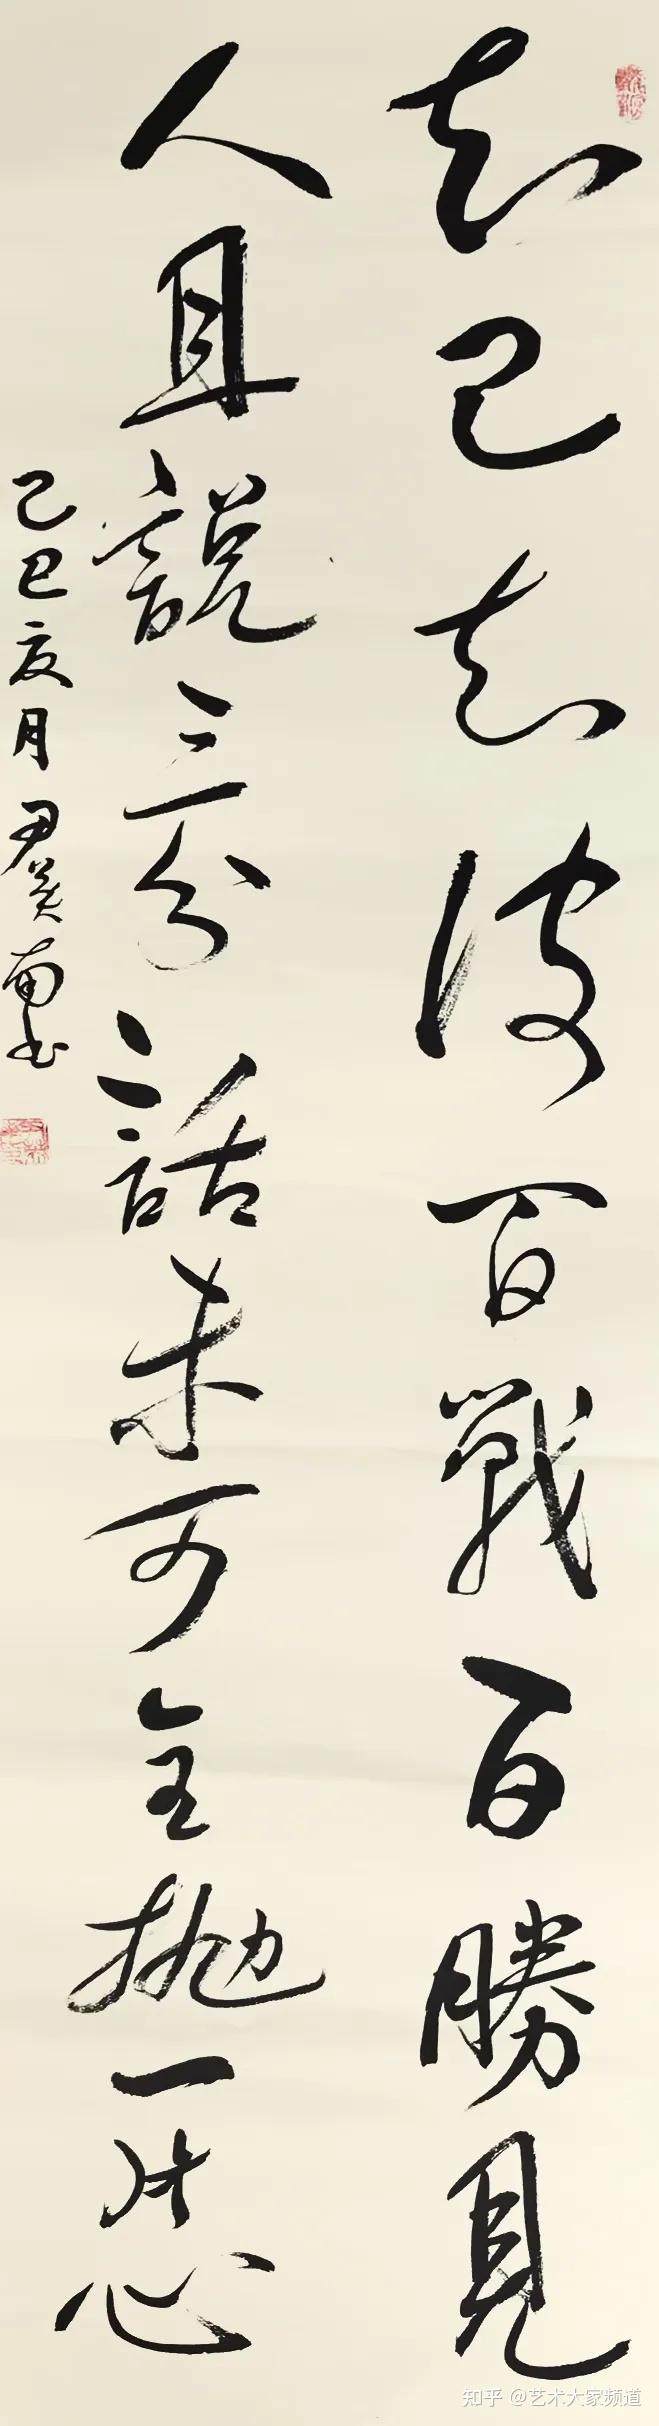 知己知彼百戰百勝見
人且說三分話未可全拋一片心
乙巳亥月尹南书
知乎 @艺术大家频道